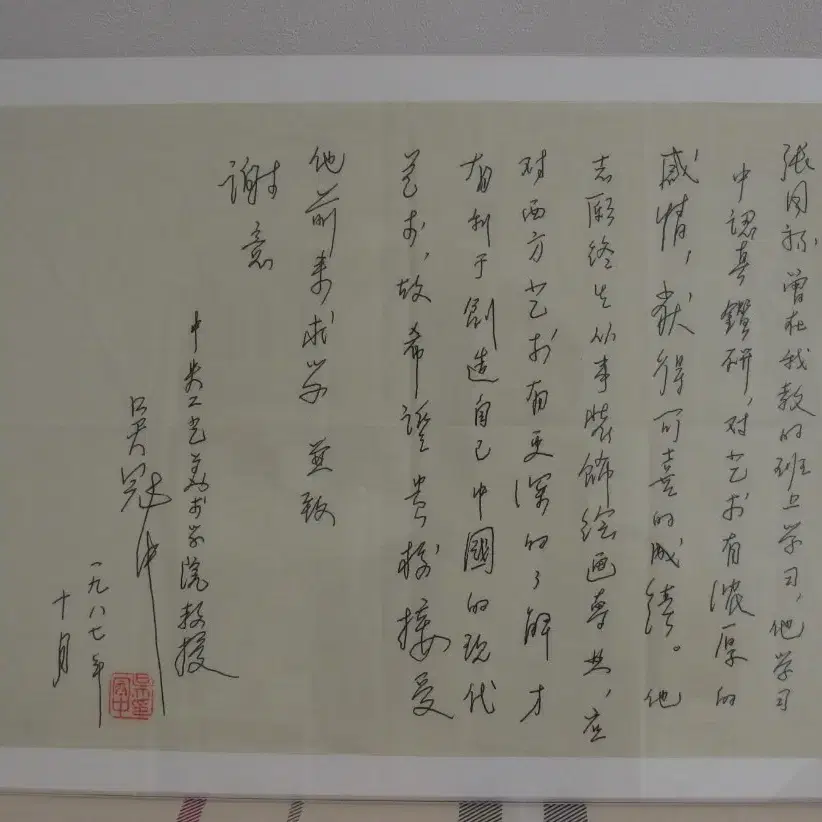 张同禄曾在我教的班上学习，他学习
中認真鑽研，对艺术有浓厚的
感情，获得可喜的成績。他
志願终生从事装飾绘画專业，应
对西方艺术有更深的了解才
有利于創造自己中國的现代
艺术，故希望贵校接受
他前来求学 並致
谢意
中央工艺美术学院教授
吴冠中
一九八七年
十月